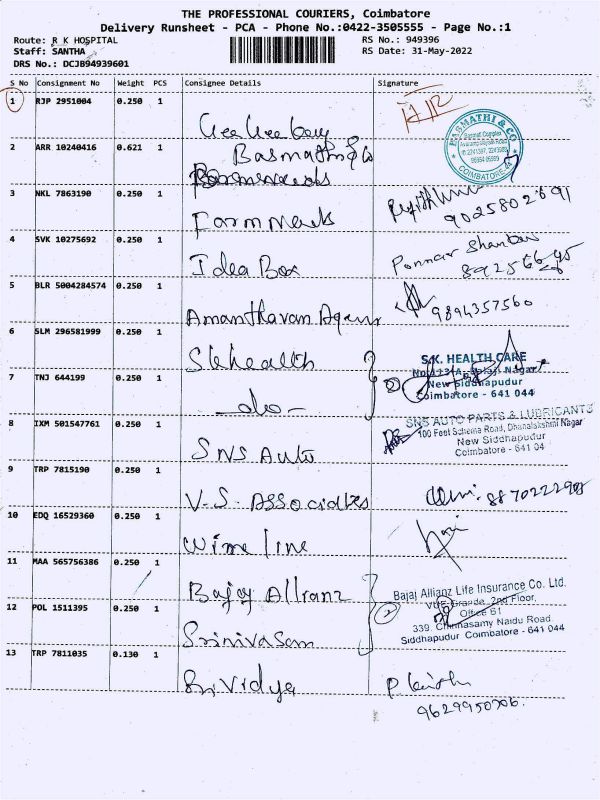 THE PROFESSIONAL COURIERS, Coimbatore
Delivery Runsheet - PCA - Phone No.:0422-3505555 - Page No.:1
Route: R K HOSPITAL RS No.: 949396
Staff: SANTHA RS Date: 31-May-2022
DRS No.: DCJB94939601
S No Consignment No Weight PCS Consignee Details Signature
1 RJP 2951004 0.250 1
2 ARR 10240416 0.621 1 Basmathi & Co
BASMATHI & CO
COIMBATORE
3 NKL 7863190 0.250 1 Farm Mark
9025802691
4 SVK 10275692 0.250 1 Idea Box Ponnar Shankar
5 BLR 5004284574 0.250 1 Amanthavan Agenc
9894357560
6 SLM 296581999 0.250 1 Sk health
S.K. HEALTH CARE
New Siddhapudur
Coimbatore - 641 044
7 TNJ 644199 0.250 1 - do -
8 IXM 501547761 0.250 1 SNS Auto
SNS AUTO PARTS & LUBRICANTS
100 Feet Scheme Road, Dhanalakshmi Nagar
New Siddhapudur
Coimbatore - 641 04
9 TRP 7815190 0.250 1 V.S. Associates
10 EDQ 16529360 0.250 1 Wime line
11 MAA 565756386 0.250 1 Bajaj Allianz
Bajaj Allianz Life Insurance Co. Ltd.
2nd Floor,
Office 61
339, Chinnasamy Naidu Road
Siddhapudur Coimbatore - 641 044
12 POL 1511395 0.250 1 Srinivasan
13 TRP 7811035 0.130 1 Sri Vidya
9629950706.